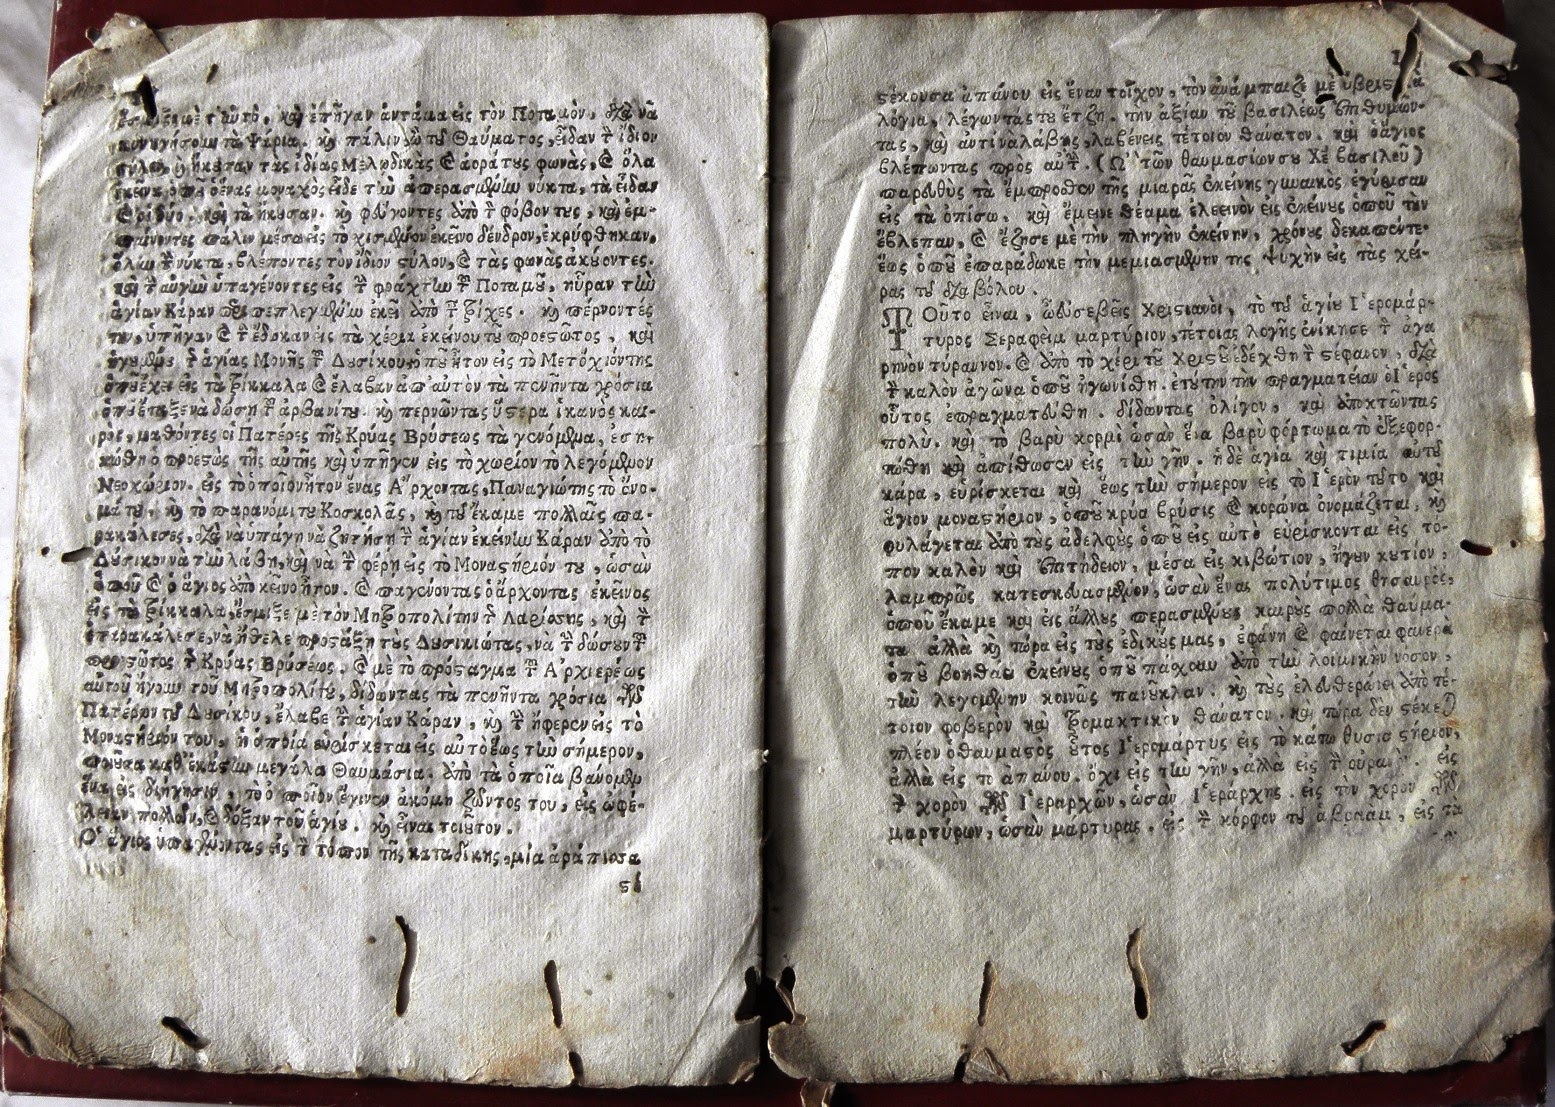 μετ' αὐτὸ, καὶ ἐπῆγαν ἀντάμα εἰς τὸν Ποταμὸν, διὰ νὰ
κυνηγήσουν τὰ Ψάρια. καὶ πάλιν ὢ τοῦ Θαύματος, εἶδαν τὸν ἴδιον
στύλον, καὶ ἤκουσαν τὰς ἰδίας Μελωδικὰς καὶ ἀοράτους φωνὰς, καὶ ὅλα
ἐκεῖνα ὁποῦ ὁ ἕνας μοναχὸς εἶδε τὴν ἀπερασμένην νύκτα, τὰ εἶδαν
καὶ οἱ δύο. καὶ τὰ ἤκουσαν. καὶ φεύγοντες ἀπὸ τὸν φόβον τους, καὶ ἐμ-
παίνοντες πάλιν μέσα εἰς τὸ χισμένον ἐκεῖνο δένδρον, ἐκρύφθηκαν,
ὅλην τὴν νύκτα, βλέποντες τὸν ἴδιον στύλον, καὶ τὰς φωνὰς ἀκούοντες.
καὶ τὴν αὐγὴν ὑπαγένοντες εἰς τὴν φράχτην τοῦ Ποταμοῦ, ηὗραν τὴν
ἁγίαν Κάραν περιπεπλεγμένην ἐκεῖ ἀπὸ τὲς τρίχες. καὶ πέρνοντές
την, ὑπῆγαν καὶ τὴν ἔδωκαν εἰς τὰ χέρια ἐκείνου τοῦ προεστῶτος, καὶ
ἡγουμένου τῆς ἁγίας Μονῆς τοῦ Δυσίκου, ὁποῦ ἦτον εἰς τὸ Μετόχιόν της
ὁποῦ ἔχει εἰς τὰ Τρίκκαλα καὶ ἔλαβαν ἀπ' αὐτὸν τὰ πενῆντα γρόσια
ὁποῦ ἔταξε νὰ δώσῃ τοῦ ἀρβανίτου. καὶ περνῶντας ὕστερα ἱκανὸς και-
ρὸς, μαθόντες οἱ Πατέρες τῆς Κρύας Βρύσεως τὰ γενόμενα, ἐση-
κώθη ὁ προεστὼς τῆς αὐτῆς καὶ ὑπῆγεν εἰς τὸ χωρίον τὸ λεγόμενον
Νεοχώριον. εἰς τὸ ὁποῖον ἦτον ἕνας Ἄρχοντας, Παναγιώτης τὸ ὄνο-
μά του, καὶ τὸ παρανόμι του Κοσκολᾶς, καὶ τοῦ ἔκαμε πολλαῖς πα-
ρακάλεσες, διὰ νὰ ὑπάγῃ νὰ ζητήσῃ τὴν ἁγίαν ἐκείνην Κάραν ἀπὸ τὸ
Δύσικον νὰ τὴν λάβῃ, καὶ νὰ τὴν φέρῃ εἰς τὸ Μοναστήριόν του, ὡσὰν
ὁποῦ καὶ ὁ ἅγιος ἀπὸ κεῖνο ἦτον. καὶ παγένοντας ὁ ἄρχοντας ἐκεῖνος
εἰς τὰ Τρίκκαλα, ἔσμιξε μὲ τὸν Μητροπολίτην τῆς Λαρίσσης, καὶ τὸν
ἐπαρακάλεσε, νὰ ἤθελε προστάξῃ τοὺς Δυσικιώτας, νὰ τὴν δώσουν τοῦ
προεστῶτος τῆς Κρύας Βρύσεως. καὶ μὲ τὸ πρόσταγμα τοῦ Ἀρχιερέως
αὐτοῦ ἤγουν τοῦ Μητροπολίτου, δίδωντας τὰ πενῆντα γρόσια τῶν
Πατέρων τοῦ Δυσίκου, ἔλαβε τὴν ἁγίαν Κάραν, καὶ τὴν ἤφερεν εἰς τὸ
Μοναστήριόν του, ἡ ὁποία εὑρίσκεται εἰς αὐτὸ ἕως τὴν σήμερον,
ποιοῦσα καθ' ἑκάστην μεγάλα Θαυμάσια. ἀπὸ τὰ ὁποῖα βάνομεν
ἕνα εἰς διήγησιν, τὸ ὁποῖον ἔγινεν ἀκόμη ζῶντος του, εἰς ὠφέ-
λειαν πολλῶν, καὶ δόξαν τοῦ ἁγίου. καὶ εἶναι τοιοῦτον.
Ὁ ἅγιος ὑπαγένωντας εἰς τὸν τόπον τῆς καταδίκης, μία ἀράπισσα
στέκουσα ἀπάνου εἰς ἕναν τοῖχον, τὸν ἀνάμπαιζε μὲ ὑβριστικὰ
λόγια, λέγωντάς του ἔτζη. τὴν ἀξίαν τοῦ βασιλέως ἐπιθυμῶν-
τας, καὶ ἀντὶ νὰ λάβῃς, λαβένεις τέτοιον θάνατον. καὶ ὁ ἅγιος
βλέπωντας πρὸς αὐτὴν. (Ὢ τῶν θαυμασίων σου Χριστὲ βασιλεῦ)
παρευθὺς τὰ ἔμπροσθεν τῆς μιαρᾶς ἐκείνης γυναικὸς ἐγύρισαν
εἰς τὰ ὀπίσω, καὶ ἔμεινε θέαμα ἐλεεινὸν εἰς ἐκείνους ὁποῦ τὴν
ἔβλεπαν, καὶ ἔζησε μὲ τὴν πληγὴν ἐκείνην, χρόνους δεκαπέντε-
ἕως ὁποῦ ἐπαράδωκε τὴν μεμιασμένην της ψυχὴν εἰς τὰς χεί-
ρας τοῦ διαβόλου.
Τοῦτο εἶναι, ὦ εὐσεβεῖς Χριστιανοὶ, τὸ τοῦ ἁγίου Ἱερομάρ-
τυρος Σεραφεὶμ μαρτύριον, τέτοιας λογῆς ἐνίκησε τὸν ἀγα
ρηνὸν τύραννον. καὶ ἀπὸ τὸ χέρι τοῦ Χριστοῦ ἐδέχθη τὸν στέφανον, διὰ
τὸν καλὸν ἀγῶνα ὁποῦ ἠγωνίσθη. ἐτούτην τὴν πραγματείαν ὁ Ἱερὸς
οὗτος ἐπραγματεύθη. δίδωντας ὀλίγον, καὶ ἀποκτῶντας
πολύ. καὶ τὸ βαρὺ κορμὶ ὡσὰν ἕνα βαρυφόρτωμα τὸ ἐξεφορ-
τώθη καὶ ἀπίθωσεν εἰς τὴν γῆν. ἡ δὲ ἁγία καὶ τιμία αὐτοῦ
κάρα, εὑρίσκεται καὶ ἕως τὴν σήμερον εἰς τὸ Ἱερὸν τοῦτο καὶ
ἅγιον μοναστήριον, ὁποῦ κρύα βρύσις καὶ κορώνα ὀνομάζεται, καὶ
φυλάγεται ἀπὸ τοὺς ἀδελφοὺς ὁποῦ εἰς αὐτὸ εὑρίσκονται εἰς τό-
πον καλὸν καὶ ἐπιτήδειον, μέσα εἰς κιβώτιον, ἤγουν κουτίον,
λαμπρῶς κατεσκευασμένον, ὡσὰν ἕνας πολύτιμος θησαυρὸς,
ὁποῦ ἔκαμε καὶ εἰς ἄλλους περασμένους καιροὺς πολλὰ θαύμα-
τα ἀλλὰ καὶ τώρα εἰς τοὺς ἐδικούς μας, ἐφάνη καὶ φαίνεται φανερὰ
ὁποῦ βοηθάει ἐκείνους ὁποῦ πάσχουν ἀπὸ τὴν λοιμικὴν νόσον,
τὴν λεγομένην κοινῶς πανοῦκλαν. καὶ τοὺς ἐλευθερώνει ἀπὸ τέ-
τοιον φοβερὸν καὶ τρομακτικὸν θάνατον. καὶ τώρα δὲν στέκει
πλέον ὁ θαυμαστὸς οὗτος Ἱερομάρτυς εἰς τὸ κάτω θυσιαστήριον,
ἀλλὰ εἰς τὸ ἀπάνου. ὄχι εἰς τὴν γῆν, ἀλλὰ εἰς τὸν οὐρανόν. εἰς
τὸν χορὸν τῶν Ἱεραρχῶν, ὡσὰν Ἱεράρχης. εἰς τὸν χορὸν τῶν
μαρτύρων, ὡσὰν μάρτυρας. εἰς τὸν κόρφον τοῦ ἀβραὰμ, εἰς τὰ